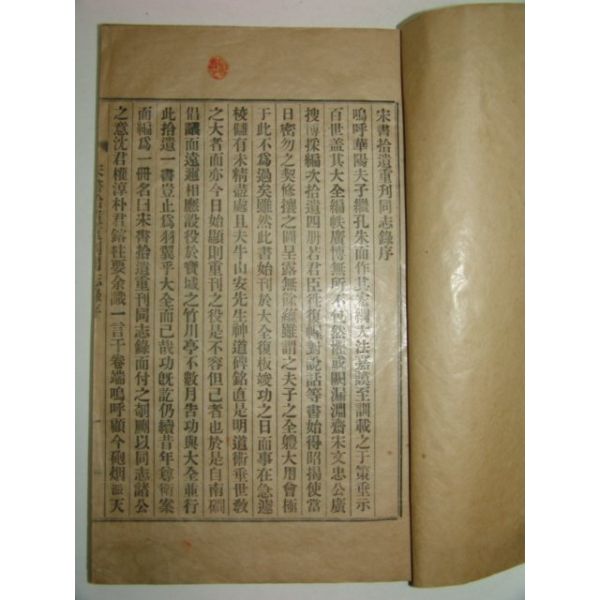 宋書拾遺重刊同志錄序
嗚呼華陽夫子繼孔朱而作其宏綱大法嘉謨至訓載之于策垂示
百世蓋其大全編帙廣博無所不包然漏淵齋宋文忠公廣
搜博採編次拾遺四冊若君臣往復幄對說話等書始得昭揭使當
日密勿之契修攘之圖呈露無餘蘊雖謂之夫子之全體大用會極
于此不爲過矣雖然此書始刊於大全復板竣功之日而事在急遽
校讎有未精盡處且夫牛山安先生神道碑銘直是明道術垂世敎
之大者而亦今日始顯則重刊之役是不容但已者也於是自南磵
倡議而遠邇相應設役於寶城之竹川亭不數月告功與大全並行
此拾遺一書豈止爲羽翼乎大全而已哉功旣訖仍續昔年尊衛案
而編爲一冊名曰宋書拾遺重刊同志錄而付之剞劂以同志諸公
之意沈君權淳朴君鎔柱要余識一言于卷端嗚呼顧今砲烟漲天